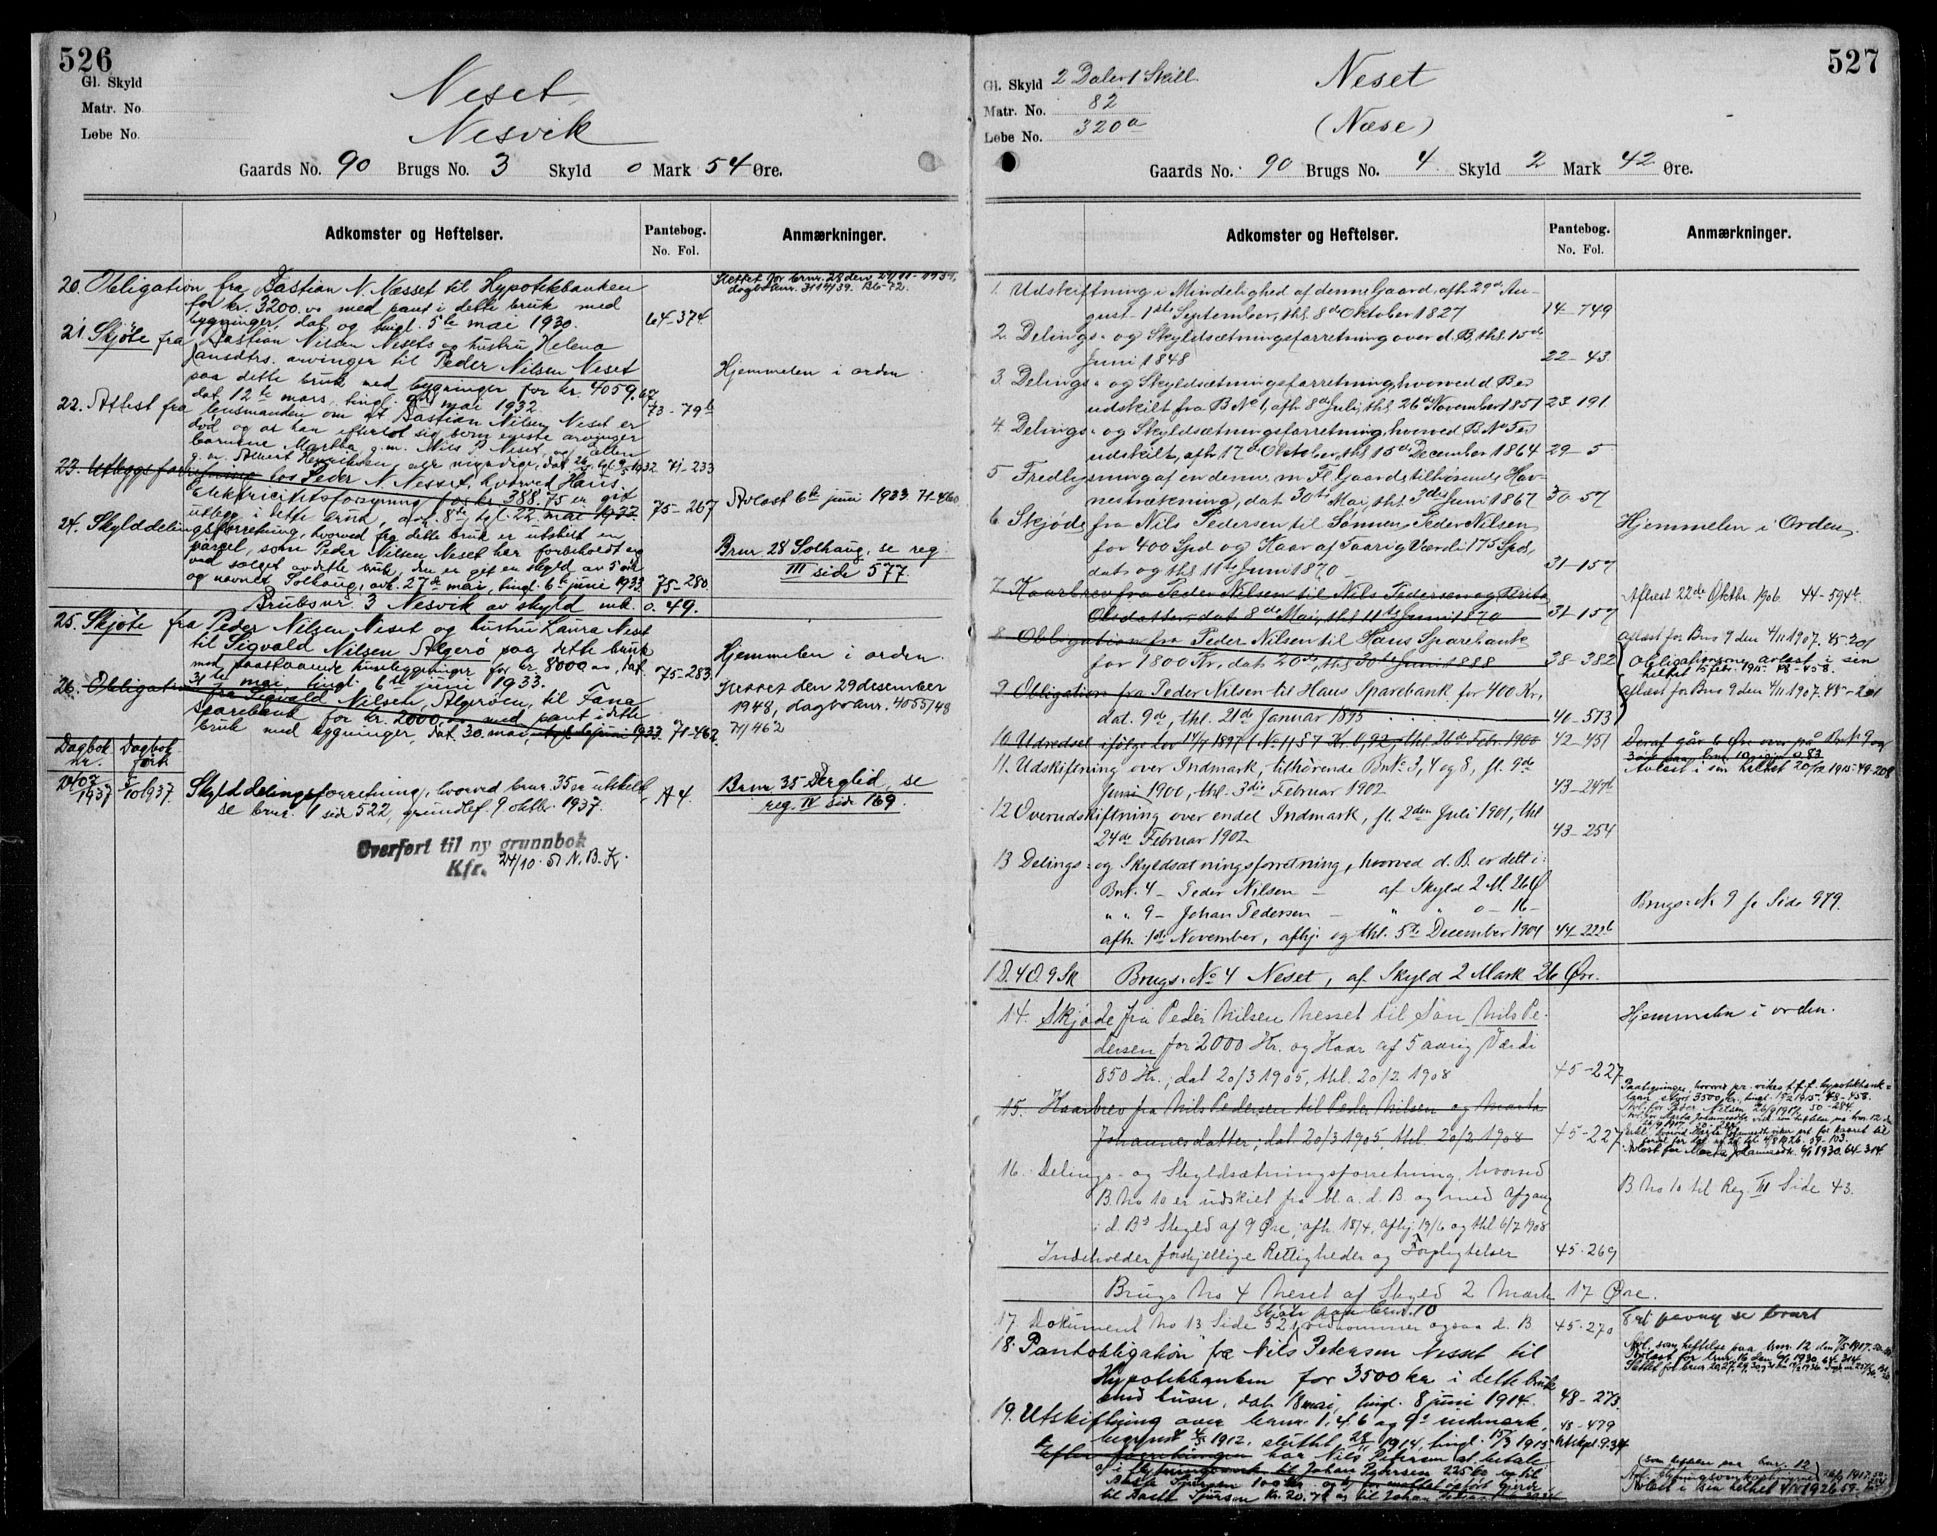 526
Gl. Skyld
Matr. No.
Løbe No.
Neset
Nesvik
Gaards No. 90 Brugs No. 3 Skyld 0 Mark 54 Øre.
Adkomster og Heftelser.
Pantebog.
No. Fol.
Anmærkninger.
20. Obligation fra Bastian N. Nesset til Hypotekbanken
for kr. 3200.00 med pant i dette bruk med
bygninger, dat. og tingl. 5te mai 1930. 64-374
Slettet for brnr. 28 den 24/11-1939,
21. Skjøte fra Bastian Nilsen Nesets og hustru Helena
Jansdtrs. arvinger til Peder Nilsen Neset
paa dette bruk med bygninger for kr. 4059,67
dat. 12te mars, tingl. mai 1932 73-79b
Hjemmelen i orden.
22. Attest fra lensmanden om at Bastian Nilsen Neset er
død og at han efterlot sig som eneste arvinger
barnene Martha g.m. Nils P. Neset, og Ellen
g.m. Albert Henriksen, alle myndige, dat. 1932 71-233
23. Utleggsforretning hos Peder N. Nesset, hvorved Haus
Elektricitetsforsyning for kr. 388.75 er git
utlegg i dette bruk, avh. 8de, tgl. 22. mai 1933. 75-267
Avlæst 6te juni 1933 71-460
24. Skylddelingsforretning, hvorved fra dette bruk er utskilt en
parcel, som Peder Nilsen Neset har forbeholdt sig
ved salget av dette bruk, den er git en skyld av 5 øre
og navnet Solhaug, avh. 27de mai, tingl. 6te juni 1933. 75-280
Brnr 28 Solhaug, se reg
III side 577.
Bruksnr 3 Nesvik av skyld mk. 0.49.
25. Skjøte fra Peder Nilsen Neset og hustru Laura Neset
til Sigvald Nilsen Algerø paa dette bruk
med paastaaende husebygninger for kr. 8000.00, dat.
31te mai, tingl. 6te juni 1933. 75-283
Hjemmelen i orden.
26. Obligation fra Sigvald Nilsen Algerøen, til Fana
Sparebank for kr. 2000.00 med pant i dette
bruk med bygninger, dat. 30. mai, tgl. 6te juni 1933. 71-462
den 29 desember
1948, dagboknr. 4055/48
71/462
Dagbok nr. Dagbok ført
1937 5/10 1937. Skylddelingsforretning, hvorved brnr. 35 er utskilt,
se brnr. 1 side 522, grunnlef. 9 oktbr. 1937. A 4.
Brnr. 35 Berglid, se
reg. IV side 169.
Overført til ny grunnbok
Kfr. 24/10-51 N.B.K.
527
Gl. Skyld 2 Daler 1 Skill.
Matr. No. 82
Løbe No. 320a
Neset
(Næse)
Gaards No. 90 Brugs No. 4 Skyld 2 Mark 42 Øre.
Adkomster og Heftelser.
Pantebog.
No. Fol.
Anmærkninger.
1. Udskiftning i Mindelighed af denne Gaard afh. 29de Au-
gust - 1ste September, thl. 8de Oktober 1827 14-749
2. Delings- og Skyldsætningsforretning over d. B, thl. 15de
Juni 1848 22-43
3. Delings- og Skyldsætningsforretning, hvorved d B er
udskilt fra B No 1, afh. 8de Juli, thl. 26de November 1851 23-191
4. Delings- og Skyldsætningsforretning, hvorved B. No 5 er
udskilt, afh. 17de Oktober, thl. 15de December 1864 29-5
5. Fredlysning af en denne m. Fl. Gaarde tilhørende Hav-
nestrækning, dat. 30te Mai, thl. 3die Juni 1867 30-57
6. Skjøde fra Nils Pedersen til Sønnen Peder Nilsen,
for 400 Spd og Kaar af 5aarig Værdi 175 Spd,
dat. og thl. 11te Juni 1870 31-157
Hjemmelen i Orden.
7. Kaarbrev fra Peder Nilsen til Nils Pedersen og Brita
Olsdatter, dat. 8de Mai, thl. 11te Juni 1870 31-157
Aflæst 22de Oktbr. 1906. 44-594b
8. Obligation fra Peder Nilsen til Haus Sparebank
for 1800 Kr, dat. 20de, thl. 30te Juni 1888 38-382
aflæst for Bno 9 den 4/11 1907. 45-201
Obligationerne avlæst i sin
helhet 1915 48-458.
9. Obligation fra Peder Nilsen til Haus Sparebank for 400 Kr,
dat. 9de, thl. 21de Januar 1895 40-573
aflæst for Bno 9 den 4/11 1907. 45-201
10. Udredsel ifølge Lov 14/4 1897 (No 1) § 7 Kr. 0,92, thl. 26de Febr. 1900 42-451
Deraf går 6 Øre over på BrNr 9 og
Avlest i sin helhet 20/12 1915-49-208
11. Udskiftning over Indmark, tilhørende BNo 3, 4 og 8, sl. 9de
Juni 1900, thl. 3die Februar 1902 43-247b
12. Overudskiftning over endel Indmark, sl. 2den Juli 1901, thl.
24de Februar 1902 43-254
13. Delings- og Skyldsætningsforretning, hvorved d. B. er delt i:
BNo. 4 - Peder Nilsen - af Skyld 2 M. 26 Ø
" " 9 - Johan Pedersen - " " 0 - 16 -
afh. 1ste November, afhj. og thl. 5te December 1904 44-222b
Brugs-No 9 se Side 979.
1 D. 4 O. 9 Sk Brugs-No 4 Neset, af Skyld 2 Mark 26 Øre.
14. Skjøde fra Peder Nilsen Nesset til Søn Nils Pe-
dersen for 2000 Kr. og Kaar af 5 aarig Værdi
850 Kr., dat 20/3 1905, thl. 20/2 1908 45-227
Hjemmelen i orden.
15. Kaarbrev fra Nils Pedersen til Peder Nilsen og Marta
Johannesdatter, dat. 20/3 1905, thl. 20/2 1908 45-227
Paategninger, hvorved pr. vikes f.f.f. hypotekbank-
laan stort 3500 kr., tingl. 1915. 48-458.
Avlæst for Marta Johannesdtr. 1930. 64-314
16. Delings- og Skyldsætningsforretning, hvorved
B No 10 er udskilt fra M.a.d.B og med Afgang
i d. Bs Skyld af 9 Øre, afh. 18/4, afhj 19/6 og thl 6/7 1908
Indeholder forskjellige Rettigheder og Forpligtelser 45-269
B No 10 til Reg. III Side 43.
Brugs No 4 Neset af Skyld 2 Mark 17 Øre.
17. Dokument No 13 Side 521 vedkommer ogsaa d. B. 45-270
18. Pantobligation fra Nils Petersen Nesset til
Hypotekbanken for 3500 kr i dette bruk
med huser, dat. 18 mai, tingl. 8 juni 1914. 48-273.
Avl. som heftelse paa brnr. 12 den 1917.
19. Utskiftning over brnr. 1, 4, 6 og 9s indmark,
begyndt 1912, sluttet 1914, tingl. 1915 48-479
har Nils Petersen at betale
til Johan Pedersen